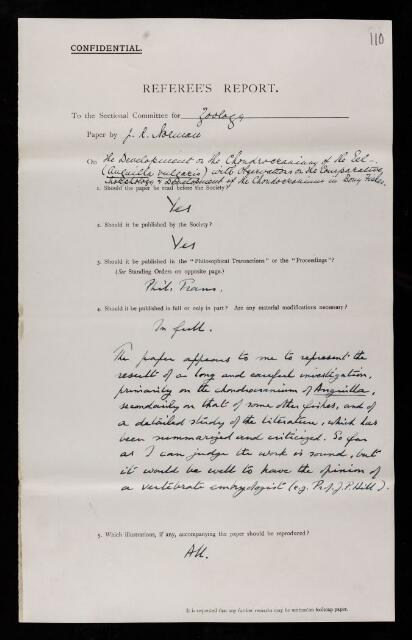 110
CONFIDENTIAL.
REFEREE'S REPORT.
To the Sectional Committee for Zoology
Paper by J. R. Norman
On the Development of the Chondrocranium of the Eel
(Anguilla vulgaris) with Observations on the Comparative
Morphology & Development of the Chondrocranium in Bony Fishes.
1. Should the paper be read before the Society?
Yes
2. Should it be published by the Society?
Yes
3. Should it be published in the "Philosophical Transactions" or the "Proceedings"?
(See Standing Orders on opposite page.)
Phil. Trans.
4. Should it be published in full or only in part? Are any material modifications necessary?
In full.
The paper appears to me to represent the
result of a long and careful investigation,
primarily on the chondrocranium of Anguilla,
secondarily on that of some other fishes, and of
a detailed study of the literature, which has
been summarized and criticized. So far
as I can judge the work is sound, but
it would be well to have the opinion of
a vertebrate embryologist (e.g. Prof. J. P. Hill).
5. Which illustrations, if any, accompanying the paper should be reproduced?
All.
It is requested that any further remarks may be written on foolscap paper.